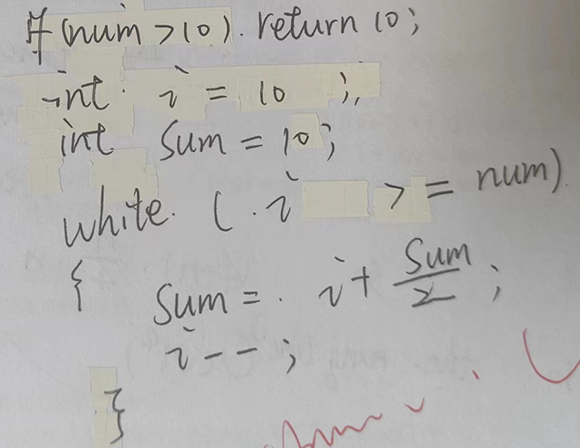 if (num >10). return 10;
int i = 10 ;
int sum = 10;
white. ( . i > = num)
{ sum = . i + sum/2 ;
i - - ;
}